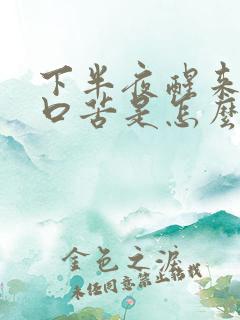 下半夜醒来
口苦是怎麽
金色之淚
未经同意禁止转载